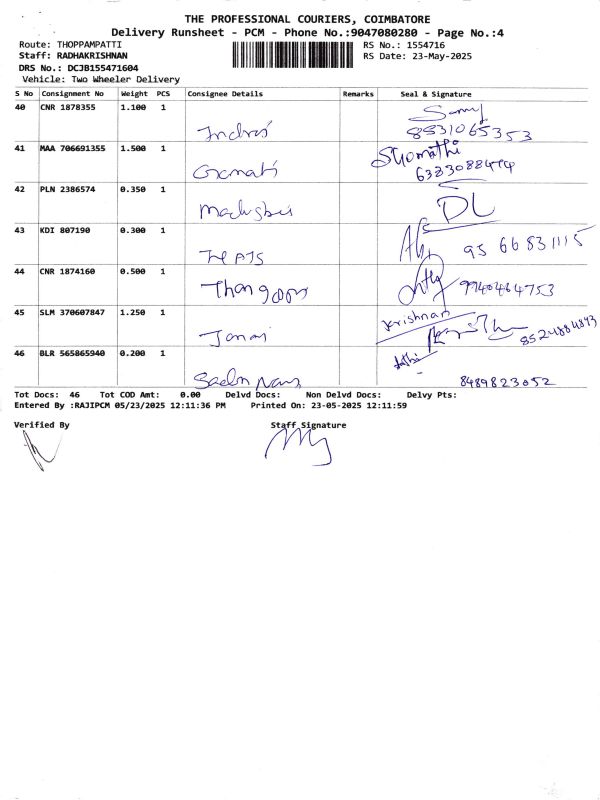 THE PROFESSIONAL COURIERS, COIMBATORE
Delivery Runsheet - PCM - Phone No.:9047080280 - Page No.:4
Route: THOPPAMPATTI RS No.: 1554716
Staff: RADHAKRISHNAN RS Date: 23-May-2025
DRS No.: DCJB155471604
Vehicle: Two Wheeler Delivery
S No Consignment No Weight PCS Consignee Details Remarks Seal & Signature
40 CNR 1878355 1.100 1
8531065353
41 MAA 706691355 1.500 1
42 PLN 2386574 0.350 1
DL
43 KDI 807190 0.300 1
95 66831115
44 CNR 1874160 0.500 1
45 SLM 370607847 1.250 1 Krishnan
8524884893
46 BLR 565865940 0.200 1
8489823052
Tot Docs: 46 Tot COD Amt: 0.00 Delvd Docs: Non Delvd Docs: Delvy Pts:
Entered By :RAJIPCM 05/23/2025 12:11:36 PM Printed On: 23-05-2025 12:11:59
Verified By Staff Signature